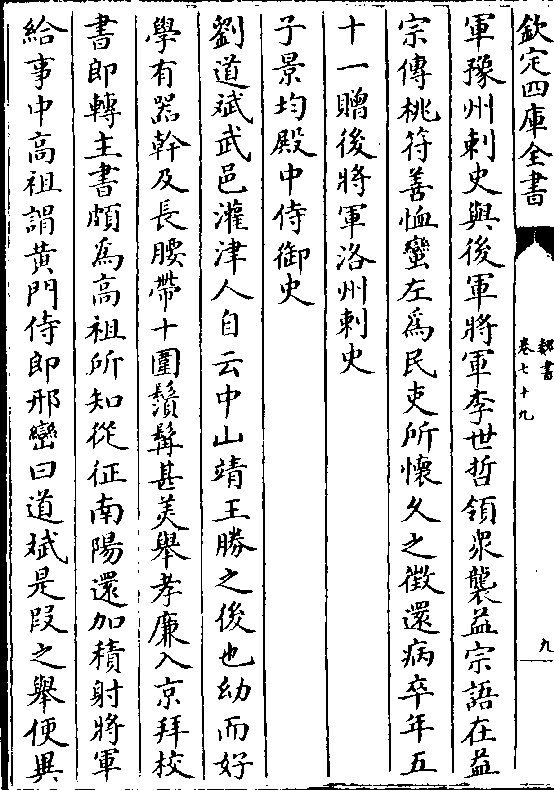 欽定四庫全書
魏書
卷七十九
九
軍豫州刺史與後軍將軍李世哲領衆襲益宗語在益
宗傳桃符善恤蠻左為民吏所懷久之徵還病卒年五
十一贈後將軍洛州刺史
子景均殿中侍御史
劉道斌武邑灌津人自云中山靖王勝之後也幼而好
學有器幹及長腰帶十圍鬚髯甚美舉孝廉入京拜校
書郎轉主書頗為高祖所知從征南陽還加積射將軍
給事中高祖謂黄門侍郎邢巒曰道斌是段之舉便異